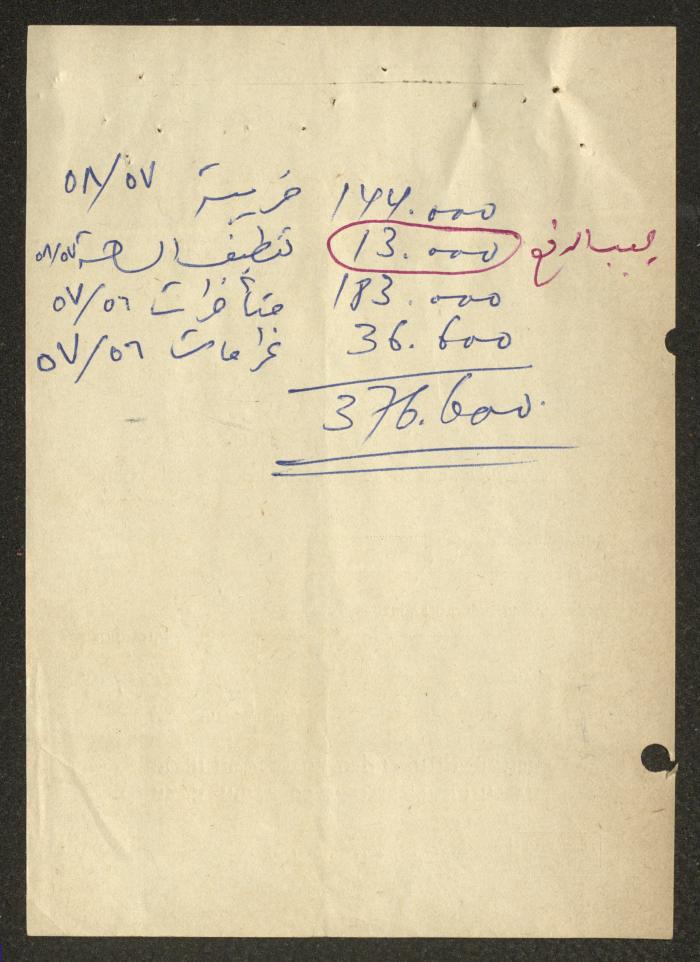 144.000 ضريبة ٥٨/٥٧
13.000 تنظيفات ٥٨/٥٧
183.000 متأخرات ٥٧/٥٦
36.600 غرامات ٥٧/٥٦
376.600